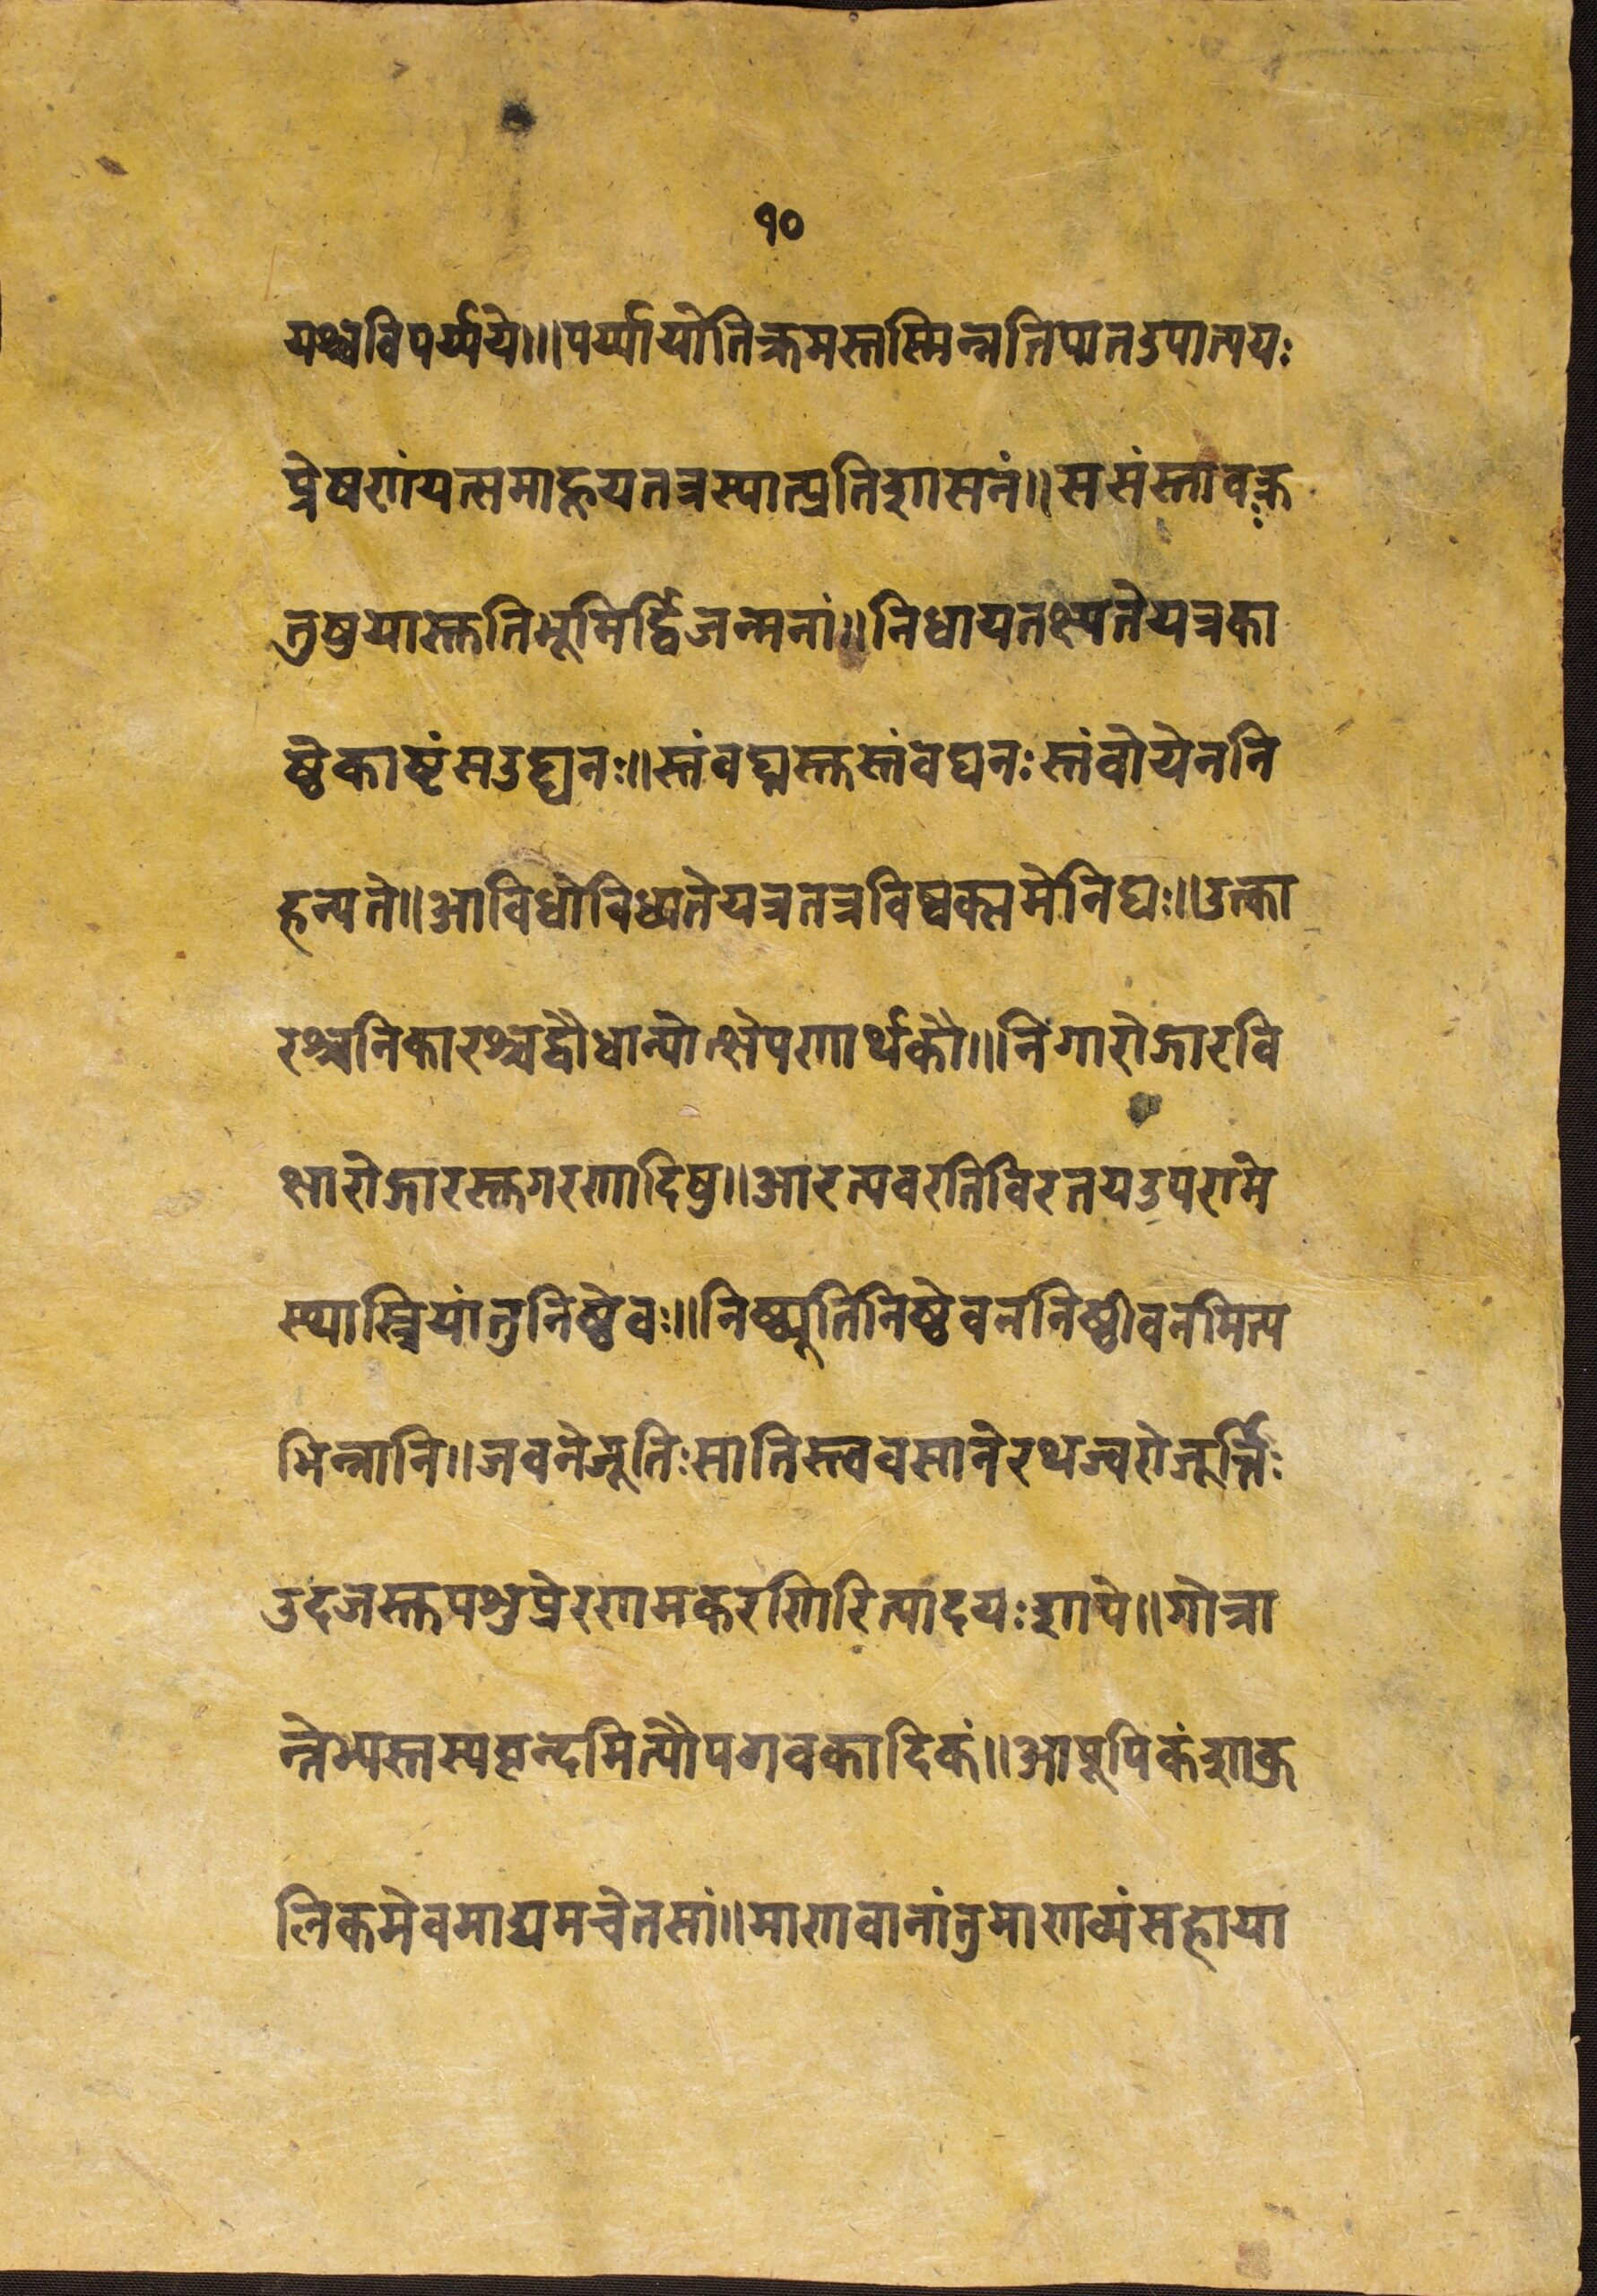 १०
यश्चविपर्य्यये॥।पर्य्यायोतिक्रमस्तस्मिन्नतिपातउपात्ययः
प्रेषणंयत्समाहूयतत्रस्यात्प्रतिशासनं॥ससंस्तावःक्र
तुषुयास्तुतिभूमिर्द्विजन्मनां॥निधायतक्ष्यतेयत्रका
ष्ठेकाष्टंसउद्घनः॥स्तंवघ्नस्तुस्तंवघनःस्तंवोयेननि
हन्यते॥आविधोविध्यतेयत्रतत्रविष्वक्समेनिघः॥उत्का
रश्चनिकारश्चद्वौधान्योत्क्षेपणार्थकौ॥निगारोद्गारवि
क्षारोद्गारस्तुगरणादिषु॥आरत्यवरतिविरतयउपरामे
स्यास्त्रियांतुनिष्ठेवः॥निष्ठ्यूतिनिष्ठेवननिष्ठीवनमित्य
भिन्नानि॥जवनेजूतिःसातिस्त्ववसानेरथज्वरोजूर्त्तिः
उदजस्तुपशुप्रेरणमकरणिरित्यादयःशापे॥गोत्रा
न्तेभ्यस्तस्यवृन्दमित्यौपगवकादिकं॥आपूपिकंशाकु
लिकमेवमाद्यमचेतसां॥माणवानांतुमाणव्यंसहाया